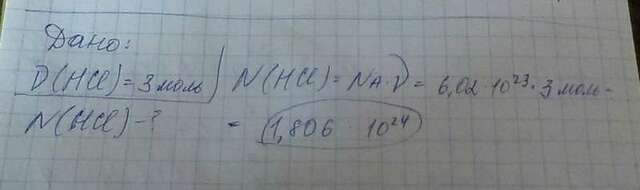 Дано:
ν(HCl) = 3 моль N(HCl) = NA·ν = 6,02 10²³·3 моль =
N(HCl) - ? = 1,806 · 10²⁴